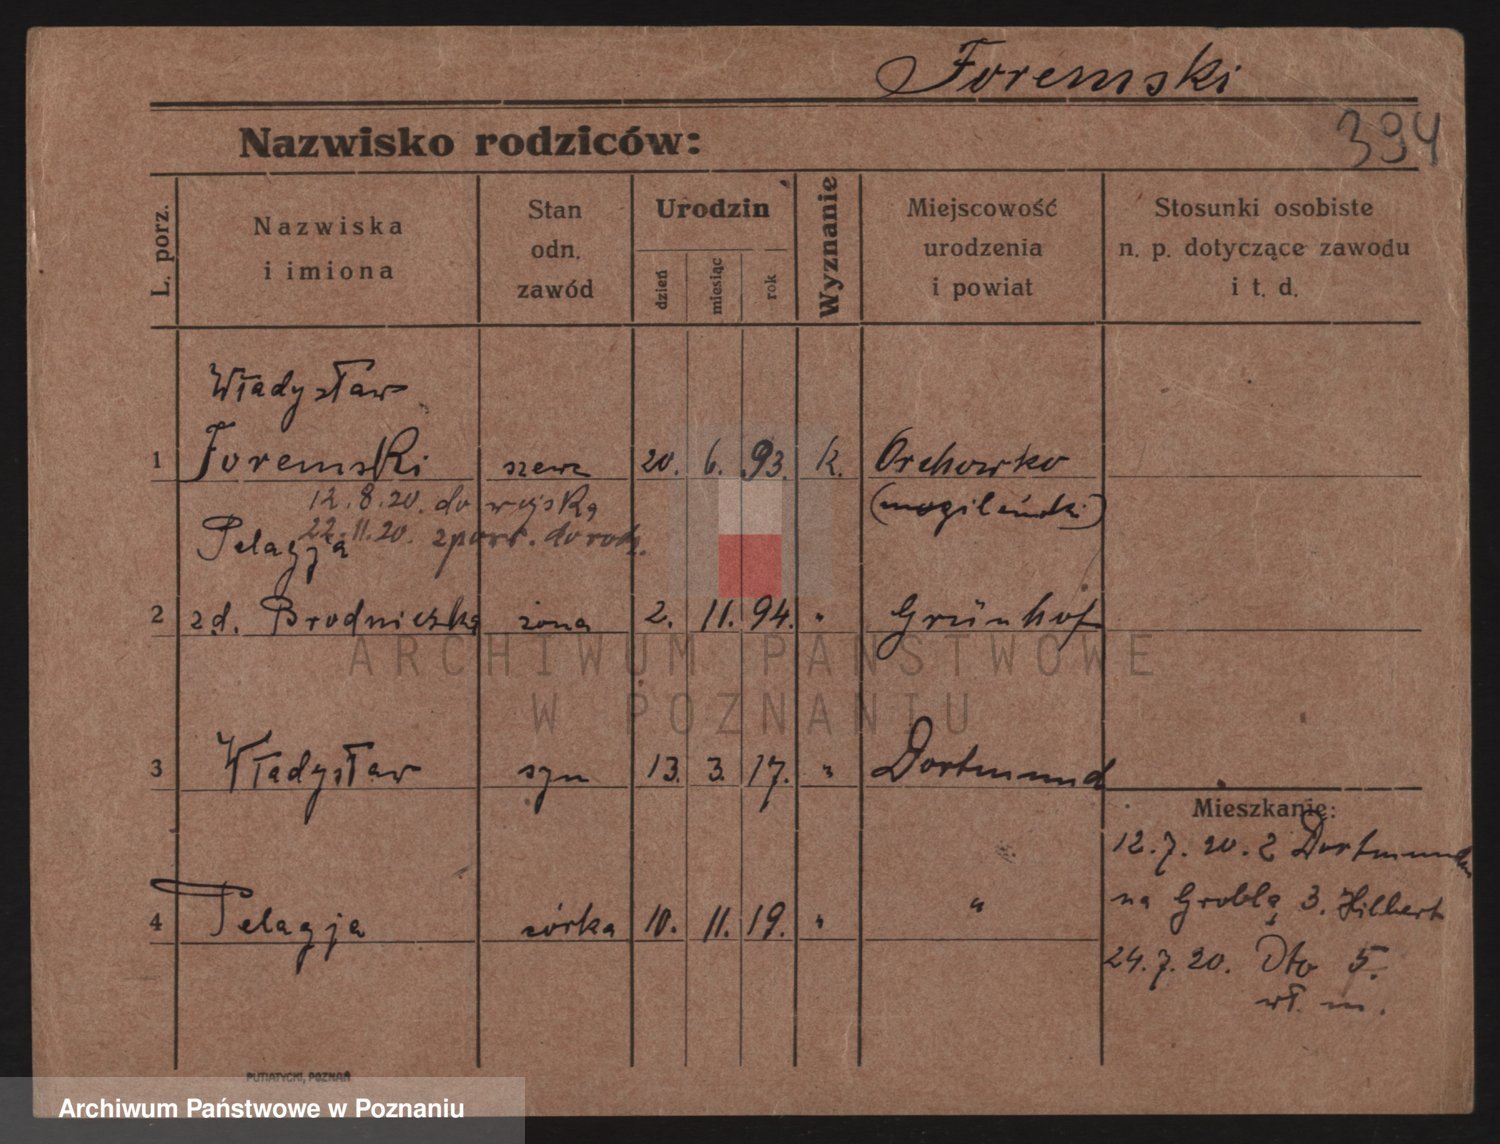 Foremski
394
Nazwisko rodziców:
L. porz.
Nazwiska
i imiona
Stan
odn.
zawód
Urodzin
dzień
miesiąc
rok
Wyznanie
Miejscowość
urodzenia
i powiat
Stosunki osobiste
n. p. dotyczące zawodu
i t. d.
Władysław
1 Foremski szewc 20. 6. 93. k. Orchowko
(mogileński)
12.8.20. do wojska
22.11.20. do rodz.
Pelagja
2 zd. Brodniczka żona 2. 11. 94. " Grünhof
3 Władysław syn 13. 3. 17. " Dortmund
Mieszkanie:
12.7.20. z Dortmundu
na Groblą 3. Hilbert
4 Pelagja córka 10. 11. 19. " "
24.7.20. Dto 5.
wł. m.
PUTIATYCKI, POZNAŃ
ARCHIWUM PAŃSTWOWE
W POZNANIU
Archiwum Państwowe w Poznaniu